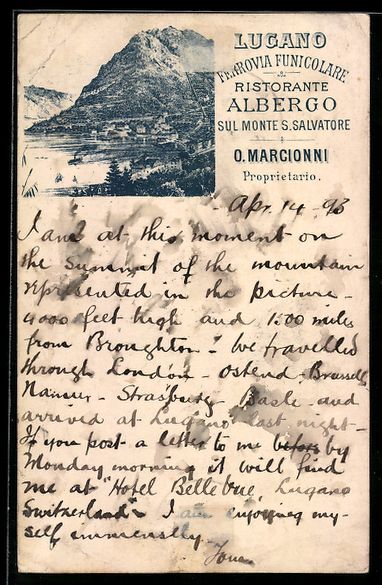 LUGANO
FERROVIA FUNICOLARE
RISTORANTE
ALBERGO
SUL MONTE S. SALVATORE
O. MARCIONNI
Proprietario.
Apr. 14 - 93
I am at this moment on
the summit of the mountain
represented in the picture -
4000 feet high and 1500 miles
from Broughton - We travelled
through London - Ostend - Brussels
Namur - Strasburg - Basle - and
arrived at Lugano last night -
If you post a letter to me before by
Monday morning it will find
me at "Hotel Belle Vue, Lugano
Switzerland" - I am enjoying my-
self immensely.
Tom